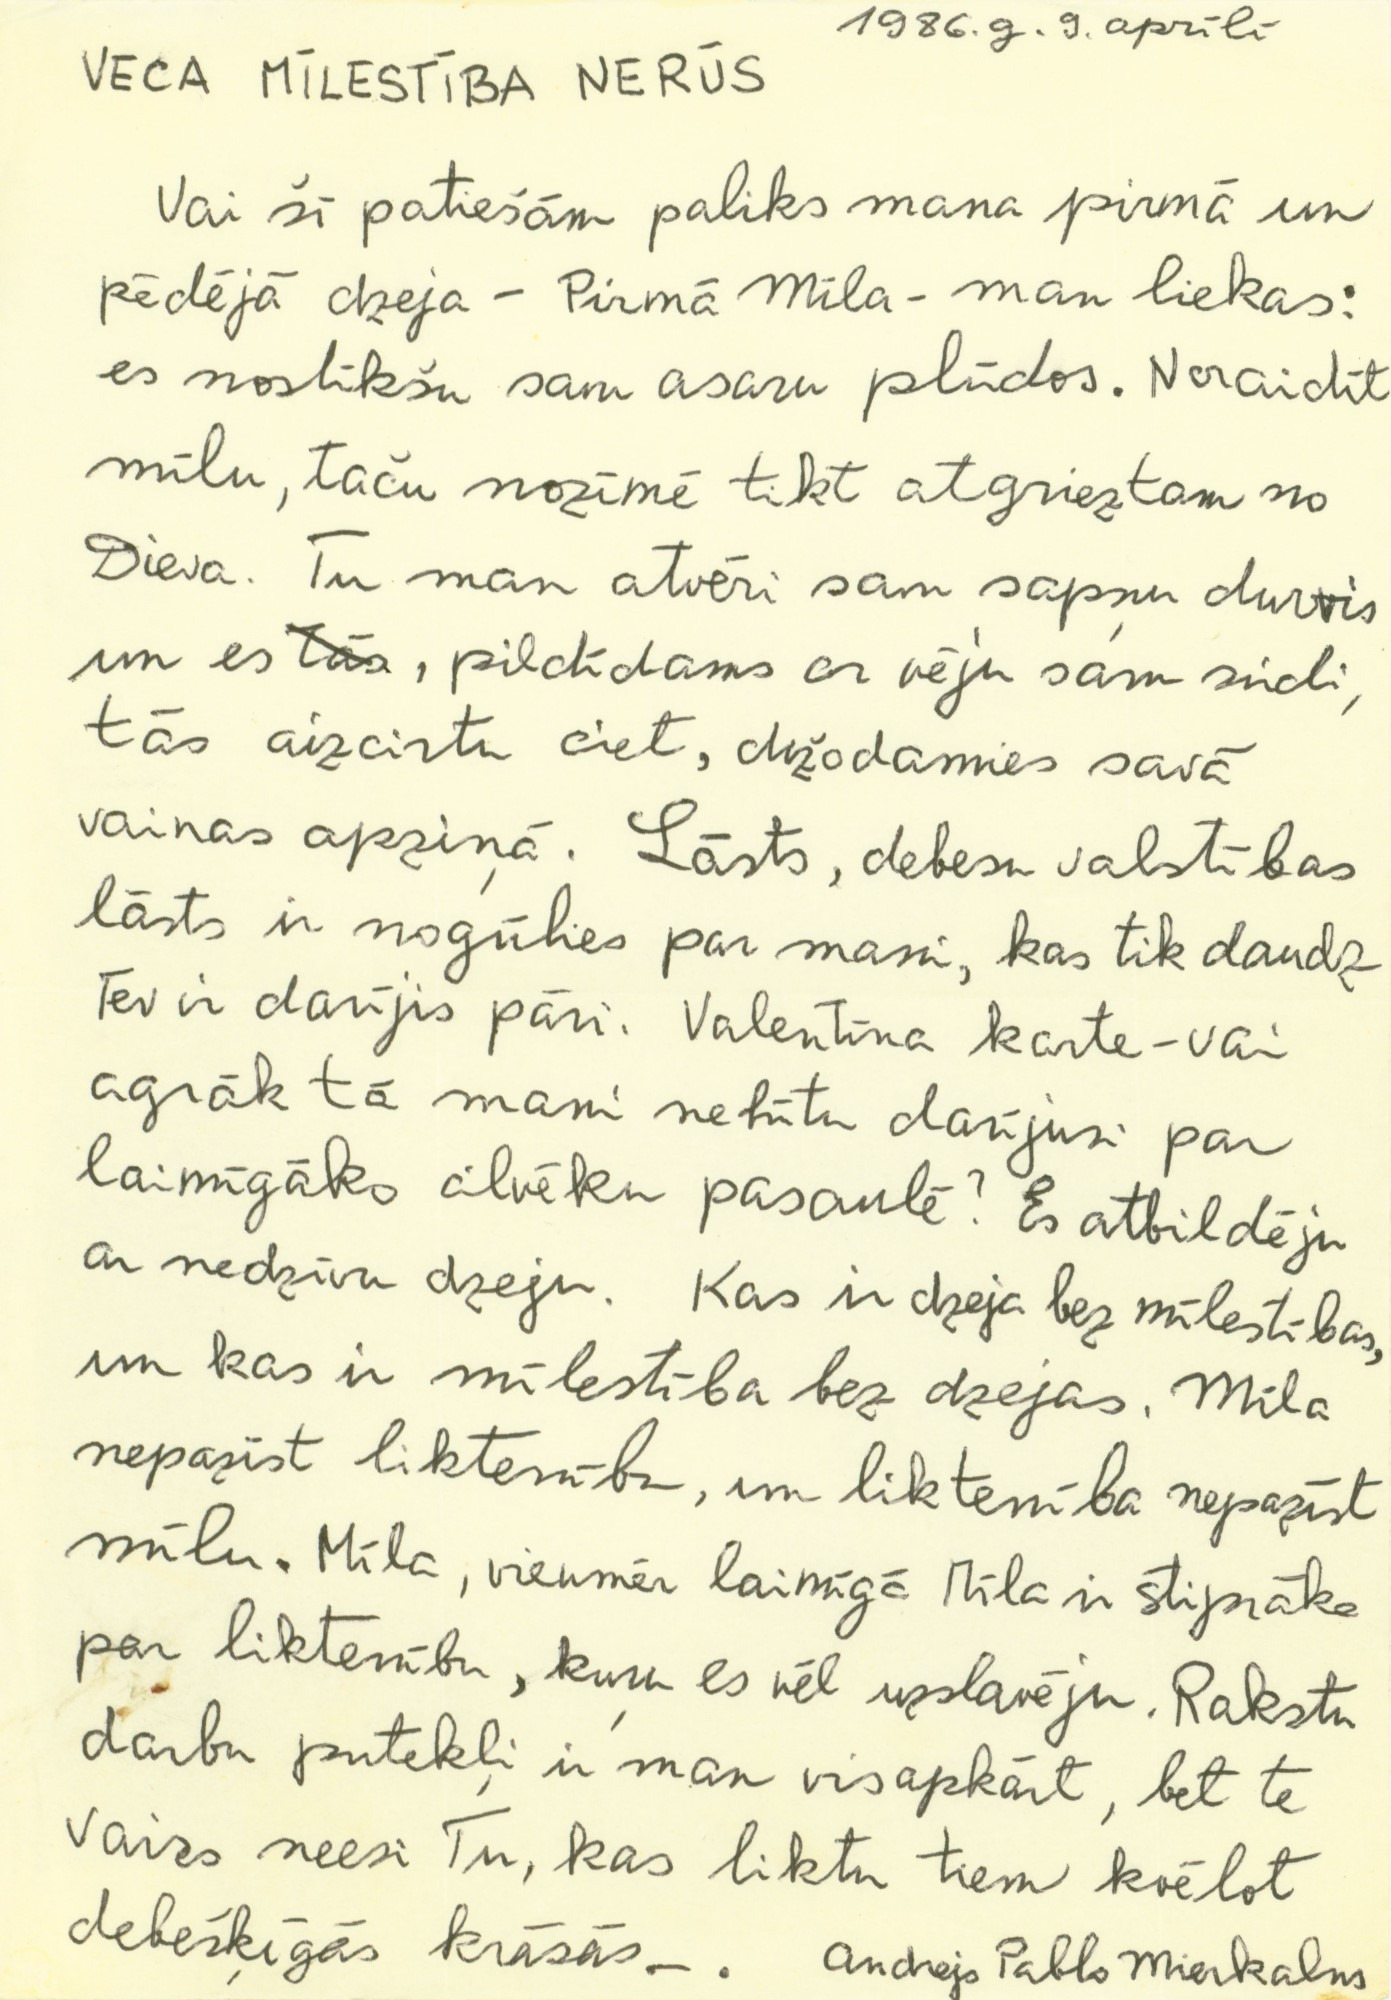 1986. g. 9. aprīlī
VECA MĪLESTĪBA NERŪS
Vai šī patiešām paliks mana pirmā un
pēdējā dzeja - Pirmā Mīla - man liekas:
es noslīkšu sam asaru plūdos. Noraidīt
mīlu, taču nozīmē tikt atgrieztam no
Dieva. Tu man atvēri sam sapņu durvis
un es tās, pildīdams ar vēju sam sirdi,
tās aizcirtu ciet, dižodamies savā
vainas apziņā. Lāsts, debesu valstības
lāsts ir nogūlies par mani, kas tik daudz
Tev ir darījis pāri. Valentīna karte - vai
agrāk tā mani nebūtu darījusi par
laimīgāko cilvēku pasaulē? Es atbildēju
ar nedzīvu dzeju. Kas ir dzeja bez mīlestības,
un kas ir mīlestība bez dzejas. Mīla
nepazīst liktenību, un liktenība nepazīst
mīlu. Mīla, vienmēr laimīgā Mīla ir stiprāka
par liktenību, kuŗu es vēl uzslavēju. Rakstu
darbu putekļi ir man visapkārt, bet te
vairs neesi Tu, kas liktu tiem kvēlot
debešķīgās krāsās -.
Andrejs Pablo Mierkalns